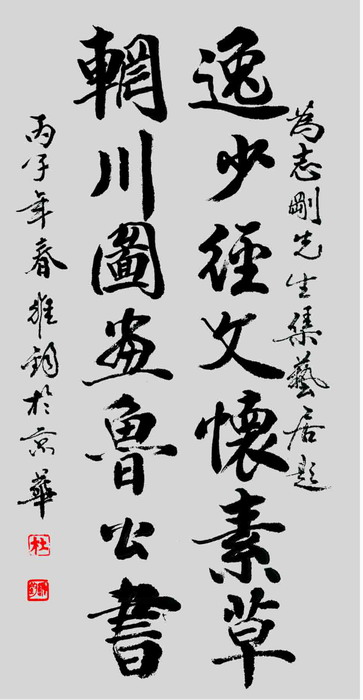 為志剛先生集藝居題
逸少經文懷素草
輞川圖畫魯公書
丙子年春維鈞於京華
杜